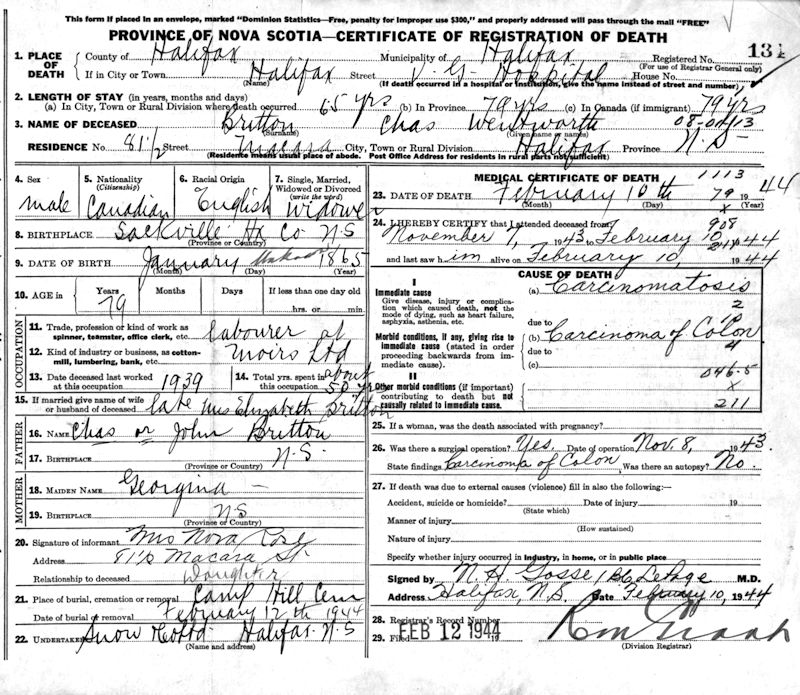 This form if placed in an envelope, marked "Dominion Statistics—Free, penalty for improper use $300," and properly addressed will pass through the mail "FREE"
PROVINCE OF NOVA SCOTIA—CERTIFICATE OF REGISTRATION OF DEATH
131
1. PLACE OF DEATH
County of Halifax Municipality of Halifax Registered No.
(For use of Registrar General only)
If in City or Town Halifax Street V. G. Hospital House No.
(Name) (If death occurred in a hospital or institution, give the name instead of street and number)
2. LENGTH OF STAY (in years, months and days)
(a) In City, Town or Rural Division where death occurred 65 yrs (b) In Province 79 yrs (c) In Canada (if immigrant) 79 yrs
3. NAME OF DECEASED Britton Chas Wentworth
(Surname) (Given name or names)
RESIDENCE No. 81 1/2 Street Macara City, Town or Rural Division Halifax Province N.S
(Residence means usual place of abode. Post Office Address for residents in rural parts not sufficient)
4. Sex
male
5. Nationality (Citizenship)
Canadian
6. Racial Origin
English
7. Single, Married, Widowed or Divorced (write the word)
Widower
8. BIRTHPLACE Sackville Hx Co N-S
(Province or Country)
9. DATE OF BIRTH January 1865
(Month) (Day) (Year)
10. AGE in
Years Months Days If less than one day old
79 hrs. or min.
OCCUPATION
11. Trade, profession or kind of work as spinner, teamster, office clerk, etc. labourer at
12. Kind of industry or business, as cotton-mill, lumbering, bank, etc. Moirs Ltd
13. Date deceased last worked at this occupation 1939
14. Total yrs. spent in this occupation about 50 yrs
15. If married give name of wife or husband of deceased late Mrs Elizabeth Britton
FATHER
16. NAME Chas or John Britton
17. BIRTHPLACE N-S.
(Province or Country)
MOTHER
18. MAIDEN NAME Georgina —
19. BIRTHPLACE N S
(Province or Country)
20. Signature of informant Mrs Nova Rose
Address 81 1/2 Macara St
Relationship to deceased Daughter
21. Place of burial, cremation or removal Camp Hill Cem
Date of burial or removal February 12th 1944
22. Undertaker Snow Halifax N-S
(Name and address)
MEDICAL CERTIFICATE OF DEATH
1113
23. DATE OF DEATH February 10th 44
79
(Month) (Day) x (Year)
24. I HEREBY CERTIFY that I attended deceased from
908
November 7, 1943 to February 10, 1944
and last saw him alive on February 10, 1944
CAUSE OF DEATH
I
Immediate cause
Give disease, injury or complication which caused death, not the mode of dying, such as heart failure, asphyxia, asthenia, etc.
(a) Carcinomatosis
2
due to
Morbid conditions, if any, giving rise to immediate cause (stated in order proceeding backwards from immediate cause).
(b) Carcinoma of Colon
due to
4
(c)
046.5
II
Other morbid conditions (if important) contributing to death but not causally related to immediate cause.
x
211
25. If a woman, was the death associated with pregnancy?
26. Was there a surgical operation? Yes. Date of operation Nov. 8, 1943.
State findings Carcinoma of Colon, Was there an autopsy? No.
27. If death was due to external causes (violence) fill in also the following:—
Accident, suicide or homicide? Date of injury 19
(State which)
Manner of injury
(How sustained)
Nature of injury
Specify whether injury occurred in industry, in home, or in public place
Signed by N. H. Gosse M.D.
Address Halifax, N.S. Date February 10, 1944
28. Registrar's Record Number
29. Filed FEB 12 1944
(Division Registrar)